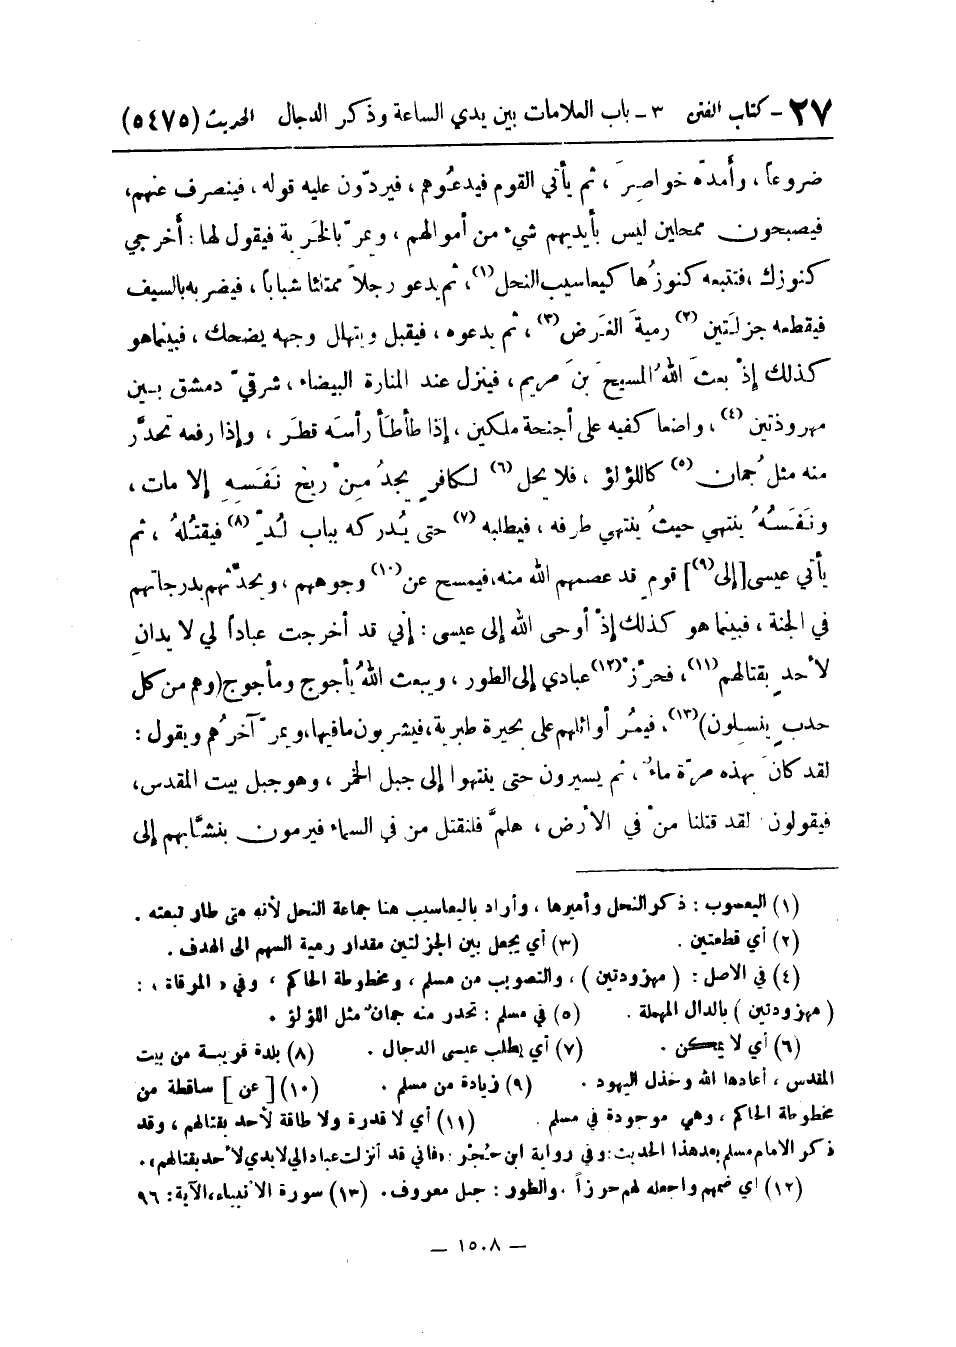 ٢٧ ـ كتاب الفتن ٣ ـ باب العلامات بين يدي الساعة وذكر الدجال الحديث (٥٤٧٥)
ضروعاً ، وأمدّه خواصِرَ ، ثم يأتي القوم فيدعُوهم ، فيردّون عليه قوله ، فينصرف عنهم،
فيصبحون ممحلين ليس بأيديهم شيء من أموالهم ، ويمرّ بالخَرِبة فيقول لها : أَخرجي
كنوزك ، فتتبعه كنوزُها كيعاسيب النحل (١)، ثم يدعو رجلاً ممتلئا شباباً ، فيضربه بالسيف
فيقطعه جزلَتين (٢) رميةَ الغَرَض (٣)، ثم يدعوه ، فيقبل ويتهلل وجهه يضحك ، فبينما هو
كذلك إذْ بعثَ اللهُ المسيحَ بنَ مريم ، فينزل عند المنارة البيضاء ، شرقيّ دمشق بين
مهروذتين (٤)، واضعا كفيه على أجنحة ملكين ، إذا طأطأ رأسَه قطَر ، وإذا رفعه تحدَّر
منه مثل جُمان (٥) كاللؤلؤ ، فلا يحل (٦) لكافرٍ يجدُ مِنْ ريح نَفَسِهِ إلا مات ،
ونَفَسُهُ ينتهي حيثُ ينتهي طرفه ، فيطلبه (٧) حتى يُدركه بباب لُدٍّ (٨) فيقتُلهُ ، ثم
يأتي عيسى [إلى (٩)] قوم قد عصمهم الله منه، فيمسح عن (١٠) وجوههم ، ويحدّثهم بدرجاتهم
في الجنة ، فبينما هو كذلك إذْ أوحى الله إلى عيسى : إني قد أخرجت عباداً لي لا يدانِ
لأحدٍ بقتالهم (١١)، فحرّزْ (١٢) عبادي إلى الطور ، ويبعث اللهُ يأجوج ومأجوج (وهم من كل
حدبٍ ينسِلون) (١٣)، فيمُر أوائلهم على بحيرة طبرية، فيشربون ما فيها، ويمرّ آخرُهم ويقول :
لقد كانَ بهذه مرّة ماءٌ ، ثم يسيرون حتى ينتهوا إلى جبل الخمَر ، وهو جبل بيت المقدس،
فيقولون لقد قتلنا منْ في الأرض ، هلمَّ فلنقتل من في السماء فيرمون بنشَّابهم إلى
(١) اليعسوب : ذكر النحل وأميرها ، وأراد باليعاسيب هنا جماعة النحل لأنه متى طار تبعته .
(٢) أي قطعتين . (٣) أي يجعل بين الجزلتين مقدار رمية السهم الى الهدف .
(٤) في الاصل : ( مهزودتين ) ، والتصويب من مسلم ، ومخطوطة الحاكم ، وفي « المرقاة » :
( مهزودتين ) بالدال المهملة . (٥) في مسلم : تحدر منه جمانٌ مثل اللؤلؤ .
(٦) أي لا يمكن . (٧) أي يطلب عيسى الدجال . (٨) بلدة قريبة من بيت
المقدس ، أعادها الله وخذل اليهود . (٩) زيادة من مسلم . (١٠) [ عن ] ساقطة من
مخطوطة الحاكم ، وهي موجودة في مسلم . (١١) أي لا قدرة ولا طاقة لأحد بقتالهم ، وقد
ذكر الامام مسلم بعد هذا الحديث: وفي رواية ابن حُجْر : «فاني قد أنزلت عبادا لي لا يدي لأحد بقتالهم».
(١٢) اي ضمهم واجعله لهم حرزاً . والطور : جبل معروف. (١٣) سورة الأنبياء، الآية: ٩٦
— ١٥٠٨ —